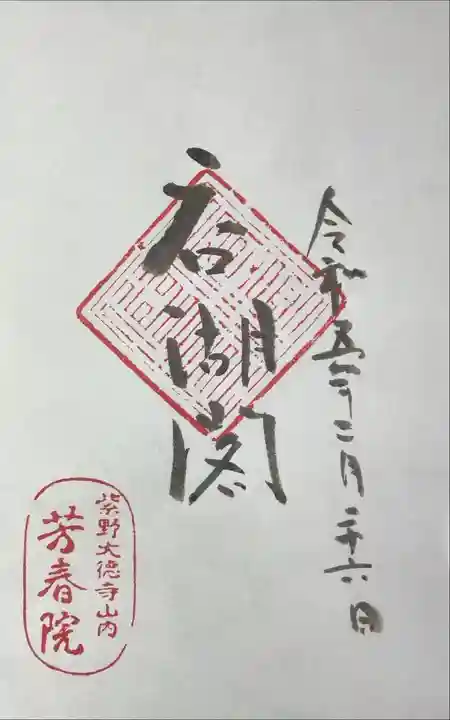 令和五年二月二十六日
呑湖閣
紫野大徳寺山内
芳春院